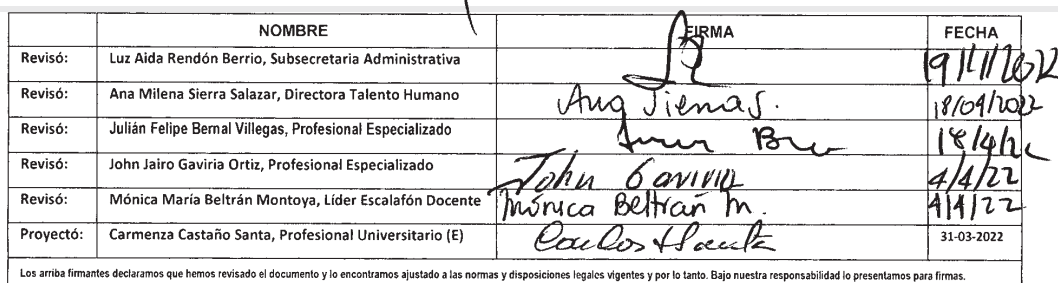 NOMBRE FIRMA FECHA
Revisó: Luz Aida Rendón Berrio, Subsecretaria Administrativa
Revisó: Ana Milena Sierra Salazar, Directora Talento Humano Ana Sierra S. 18/04/2022
Revisó: Julián Felipe Bernal Villegas, Profesional Especializado 18/4/22
Revisó: John Jairo Gaviria Ortiz, Profesional Especializado John Gaviria 4/4/22
Revisó: Mónica María Beltrán Montoya, Líder Escalafón Docente Mónica Beltrán M. 4/4/22
Proyectó: Carmenza Castaño Santa, Profesional Universitario (E) 31-03-2022
Los arriba firmantes declaramos que hemos revisado el documento y lo encontramos ajustado a las normas y disposiciones legales vigentes y por lo tanto. Bajo nuestra responsabilidad lo presentamos para firmas.